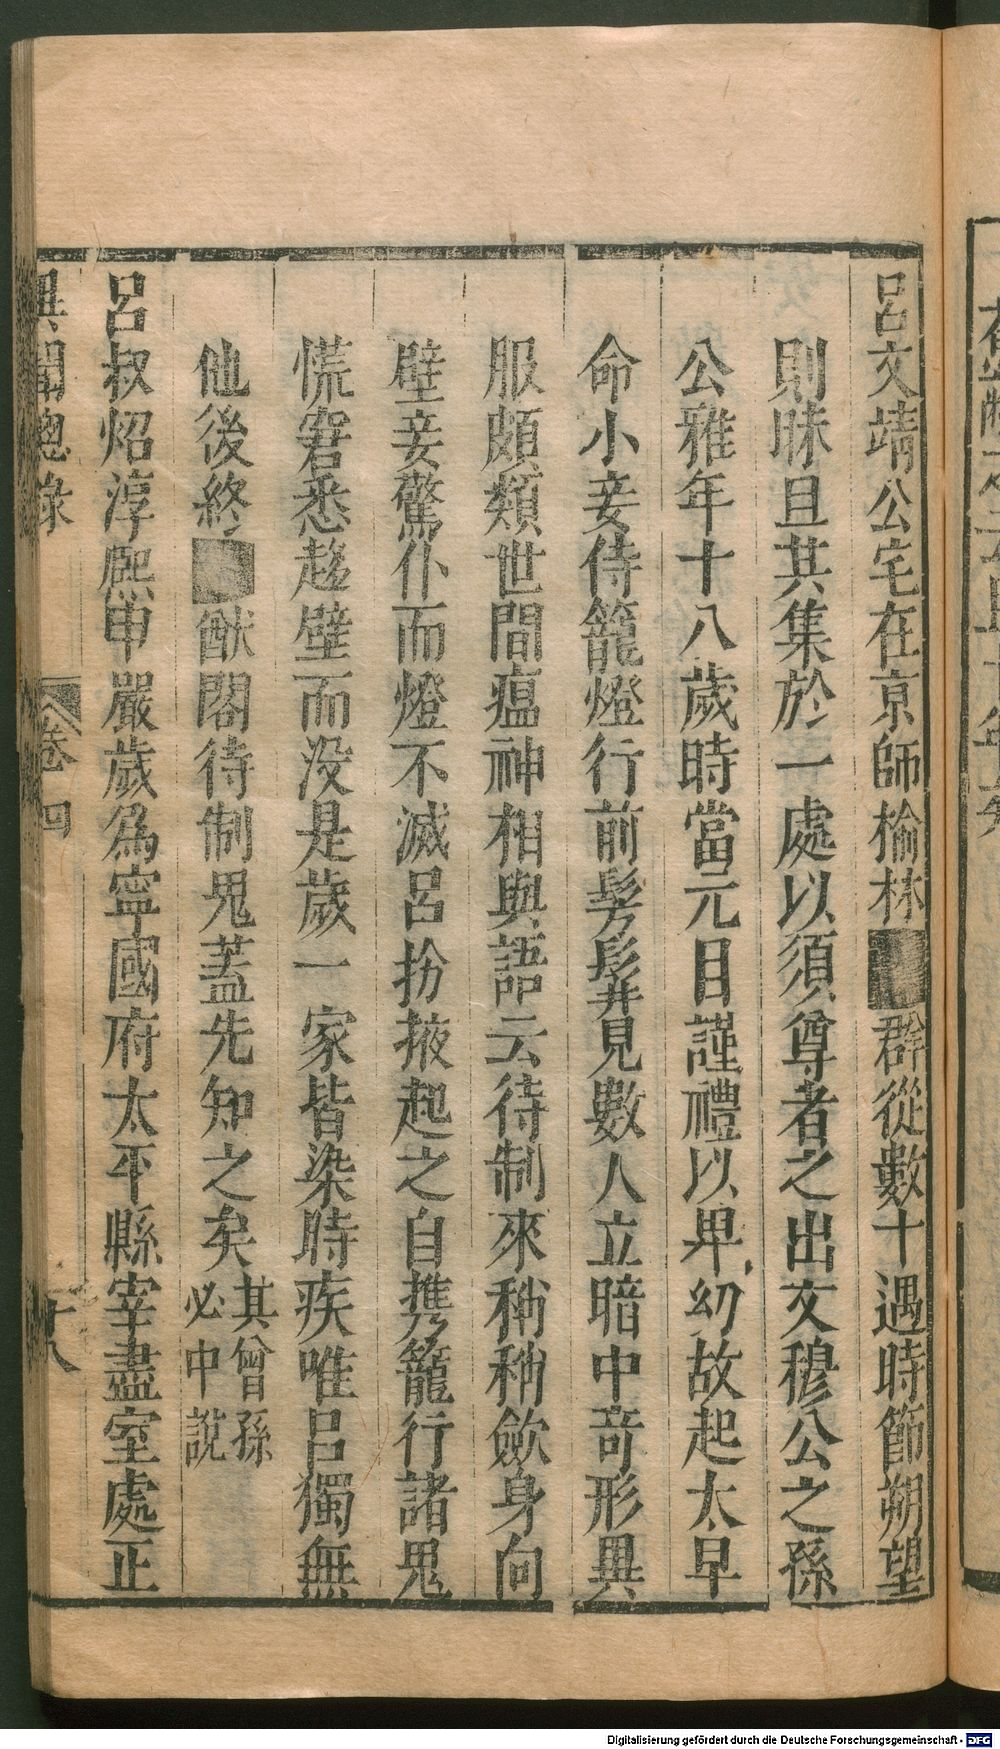 呂文靖公宅在京師榆林■群從數十遇時節朔望
則昧旦共集於一處以須尊者之出文穆公之孫
公雅年十八歲時當元日謹禮以卑幼故起太早
命小妾侍籠燈行前髣髴見數人立暗中竒形異
服頗類世間瘟神相與語云待制來稍稍歛身向
壁妾驚仆而燈不滅呂扮掖起之自携籠行諸鬼
慌窘悉趍壁而没是歲一家皆染時疾唯呂獨無
他後終■猷閣待制鬼蓋先知之矣其曾孫
必中說
呂叔炤淳熙甲嚴歲爲寧國府太平縣宰盡室處正
異聞總錄 卷四 十八
Digitalisierung gefördert durch die Deutsche Forschungsgemeinschaft - DFG